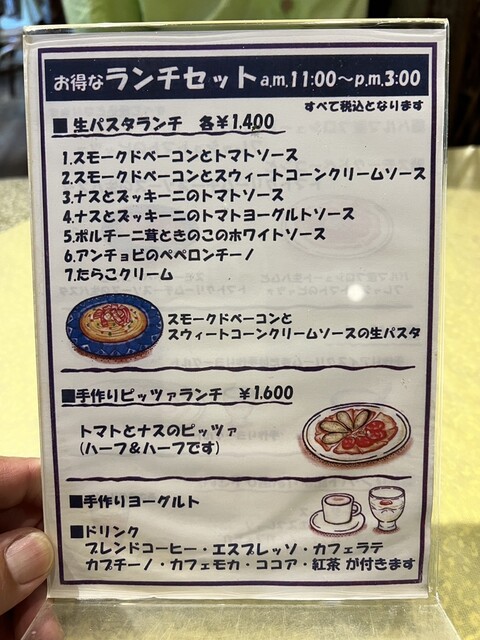 お得なランチセット a.m.11:00～p.m.3:00
すべて税込となります
■生パスタランチ 各¥1,400
1.スモークドベーコンとトマトソース
2.スモークドベーコンとスウィートコーンクリームソース
3.ナスとズッキーニのトマトソース
4.ナスとズッキーニのトマトヨーグルトソース
5.ポルチーニ茸ときのこのホワイトソース
6.アンチョビのペペロンチーノ
7.たらこクリーム
スモークドベーコンと
スウィートコーンクリームソースの生パスタ
■手作りピッツァランチ ¥1,600
トマトとナスのピッツァ
(ハーフ＆ハーフです)
■手作りヨーグルト
■ドリンク
ブレンドコーヒー・エスプレッソ・カフェラテ
カプチーノ・カフェモカ・ココア・紅茶 が付きます